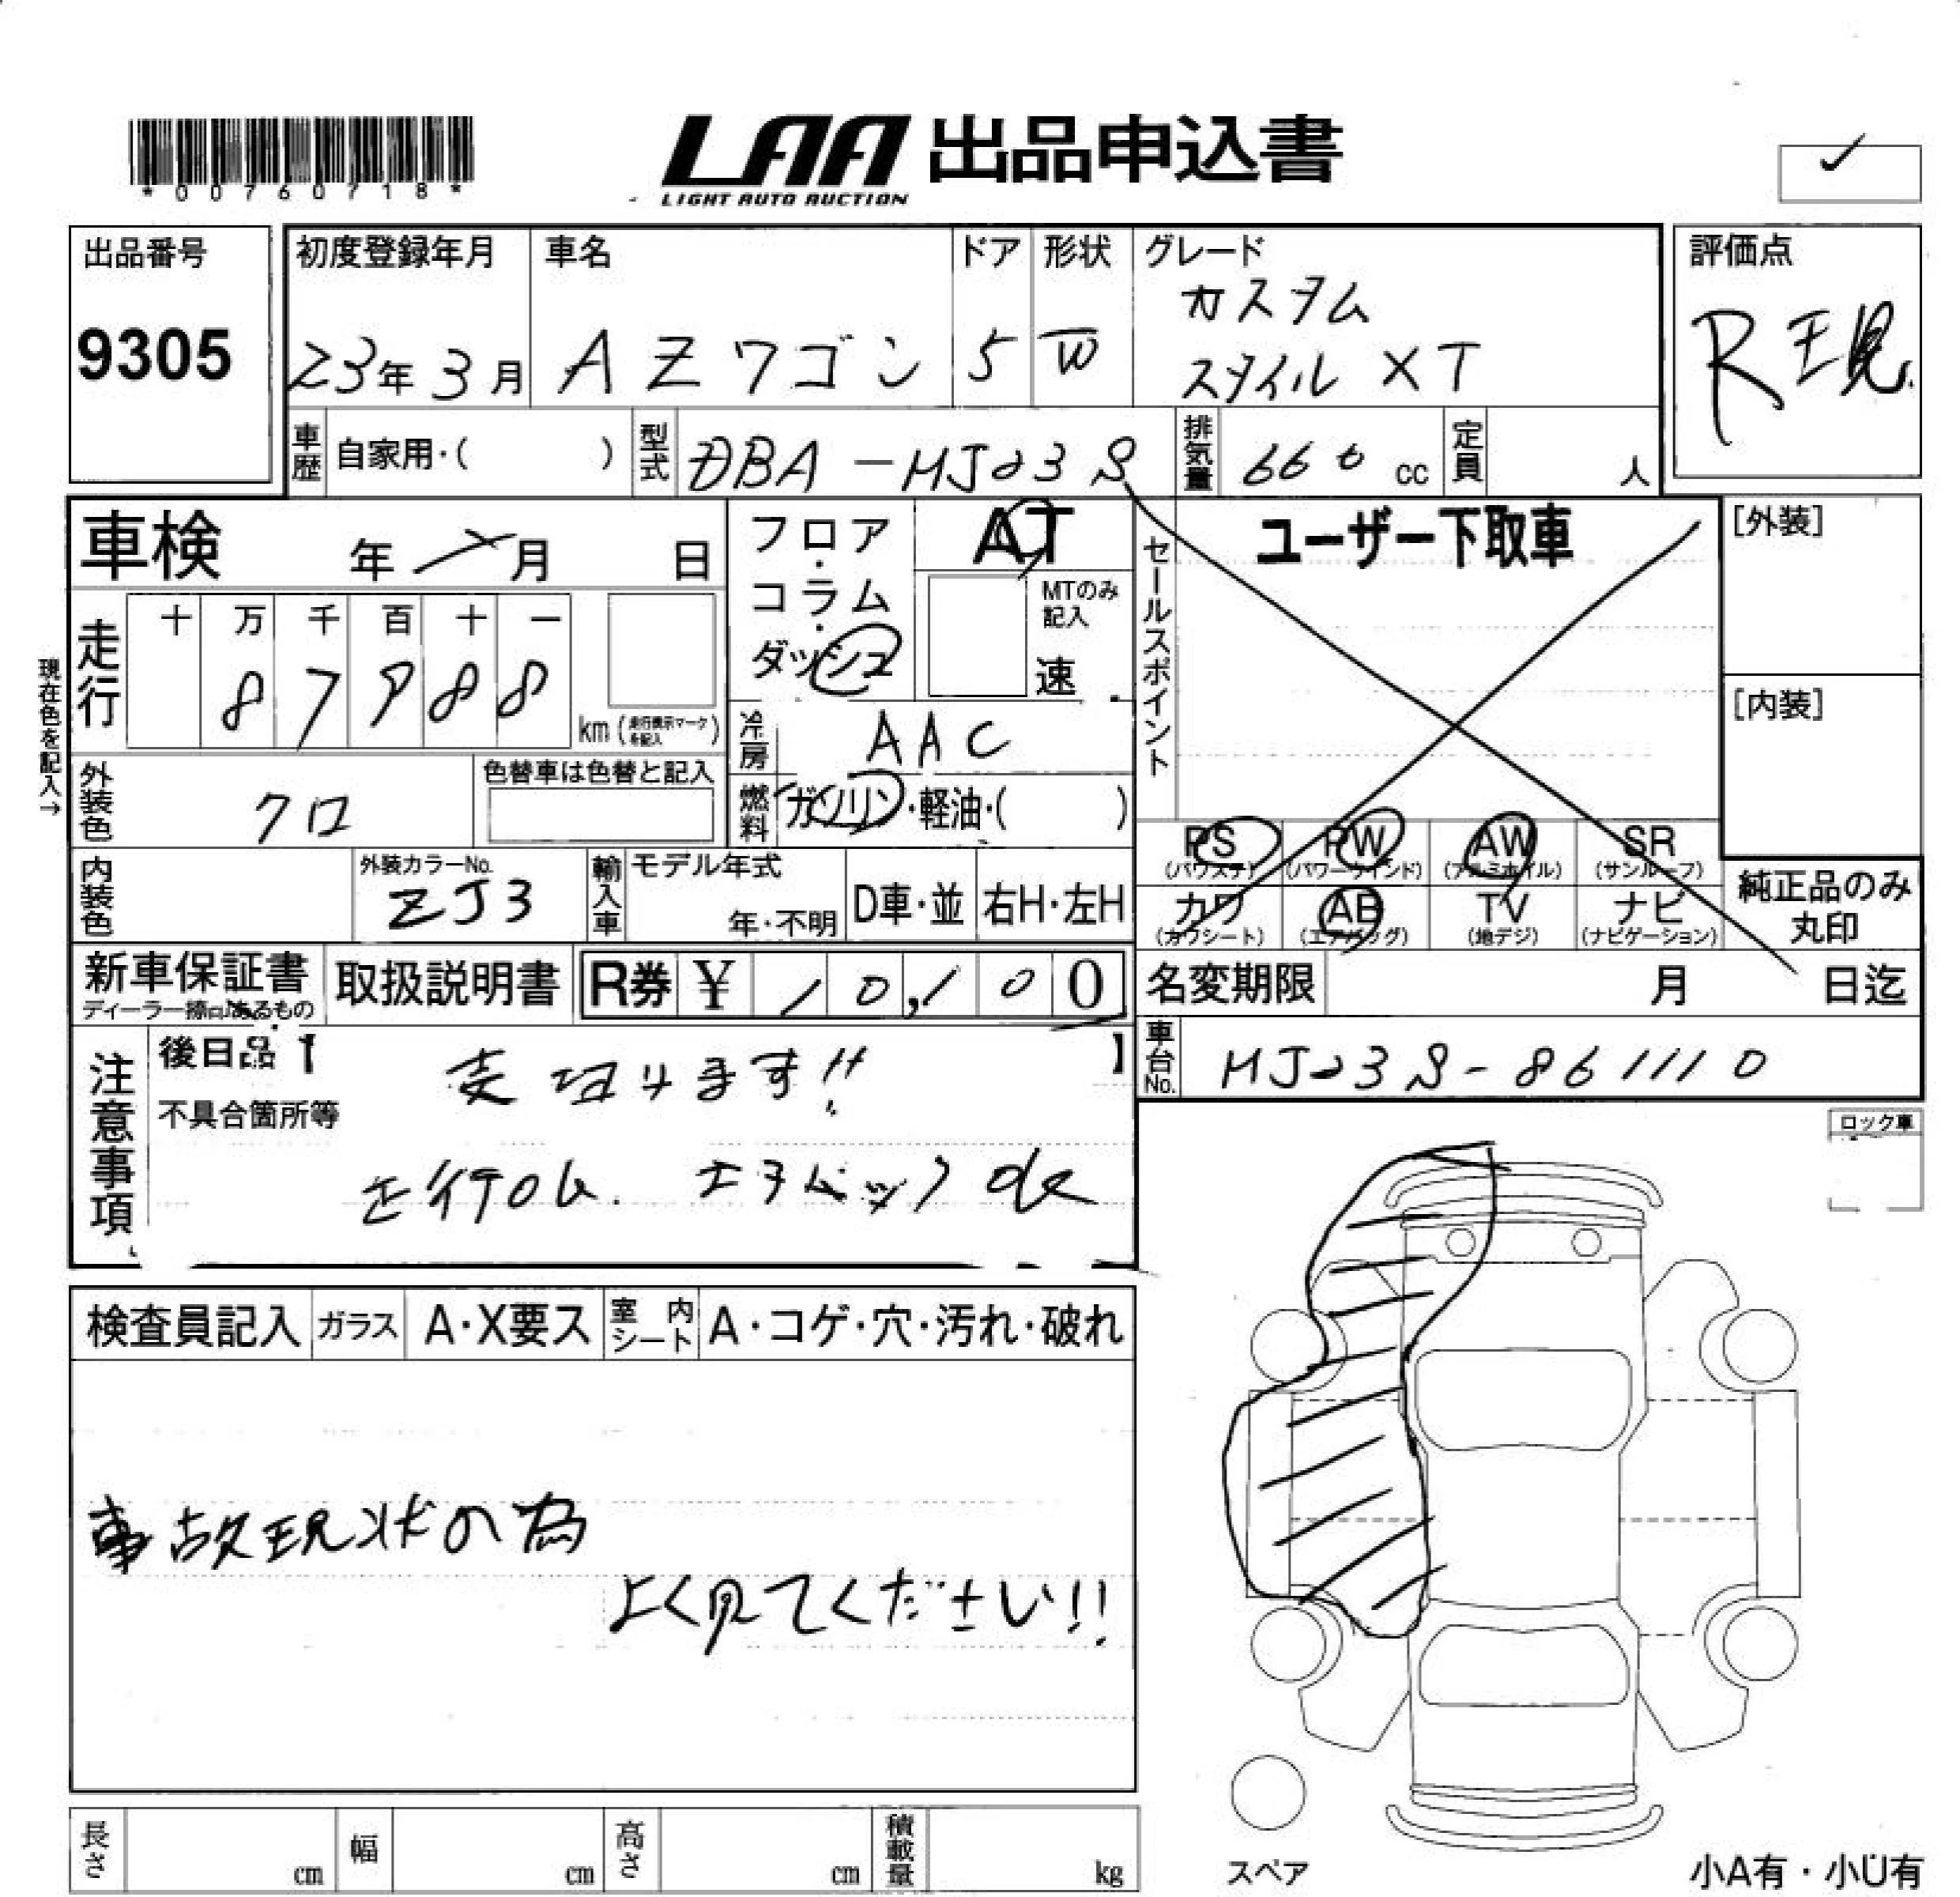 *00760718*
LAA 出品申込書
LIGHT AUTO AUCTION
出品番号
9305
初度登録年月
23年3月
車名
AZワゴン
ドア
5
形状
W
グレード
カスタム
スタイル XT
評価点
R現
車歴
自家用・( )
型式
DBA-HJ23S
排気量
660 cc
定員
人
車検
年 月 日
フロア・コラム・ダッシュ
AT
MTのみ記入
速
セールスポイント
ユーザー下取車
[外装]
[内装]
現在色を記入→
走行
十 万 千 百 十 一
8 7 9 8 8
km (走行表示マークを記入)
冷房
AAC
外装色
クロ
色替車は色替と記入
燃料
ガソリン・軽油・( )
PS
(パワステ)
PW
(パワーウインド)
AW
(アルミホイル)
SR
(サンルーフ)
カワ
(カワシート)
AB
(エアバッグ)
TV
(地デジ)
ナビ
(ナビゲーション)
純正品のみ
丸印
内装色
外装カラーNo.
ZJ3
輸入車
モデル年式
年・不明
D車・並
右H・左H
新車保証書
取扱説明書
R券 ¥ 10,100
名変期限
月 日迄
車台No.
HJ23S-861110
注意事項
後日品【 】
売切ります!!
不具合箇所等
走行OK. エアバック OK
ロック車
検査員記入
ガラス
A・X要ス
室内シート
A・コゲ・穴・汚れ・破れ
事故現状の為
よく見てください!!
長さ
cm
幅
cm
高さ
cm
積載量
kg
スペア
小A有・小U有